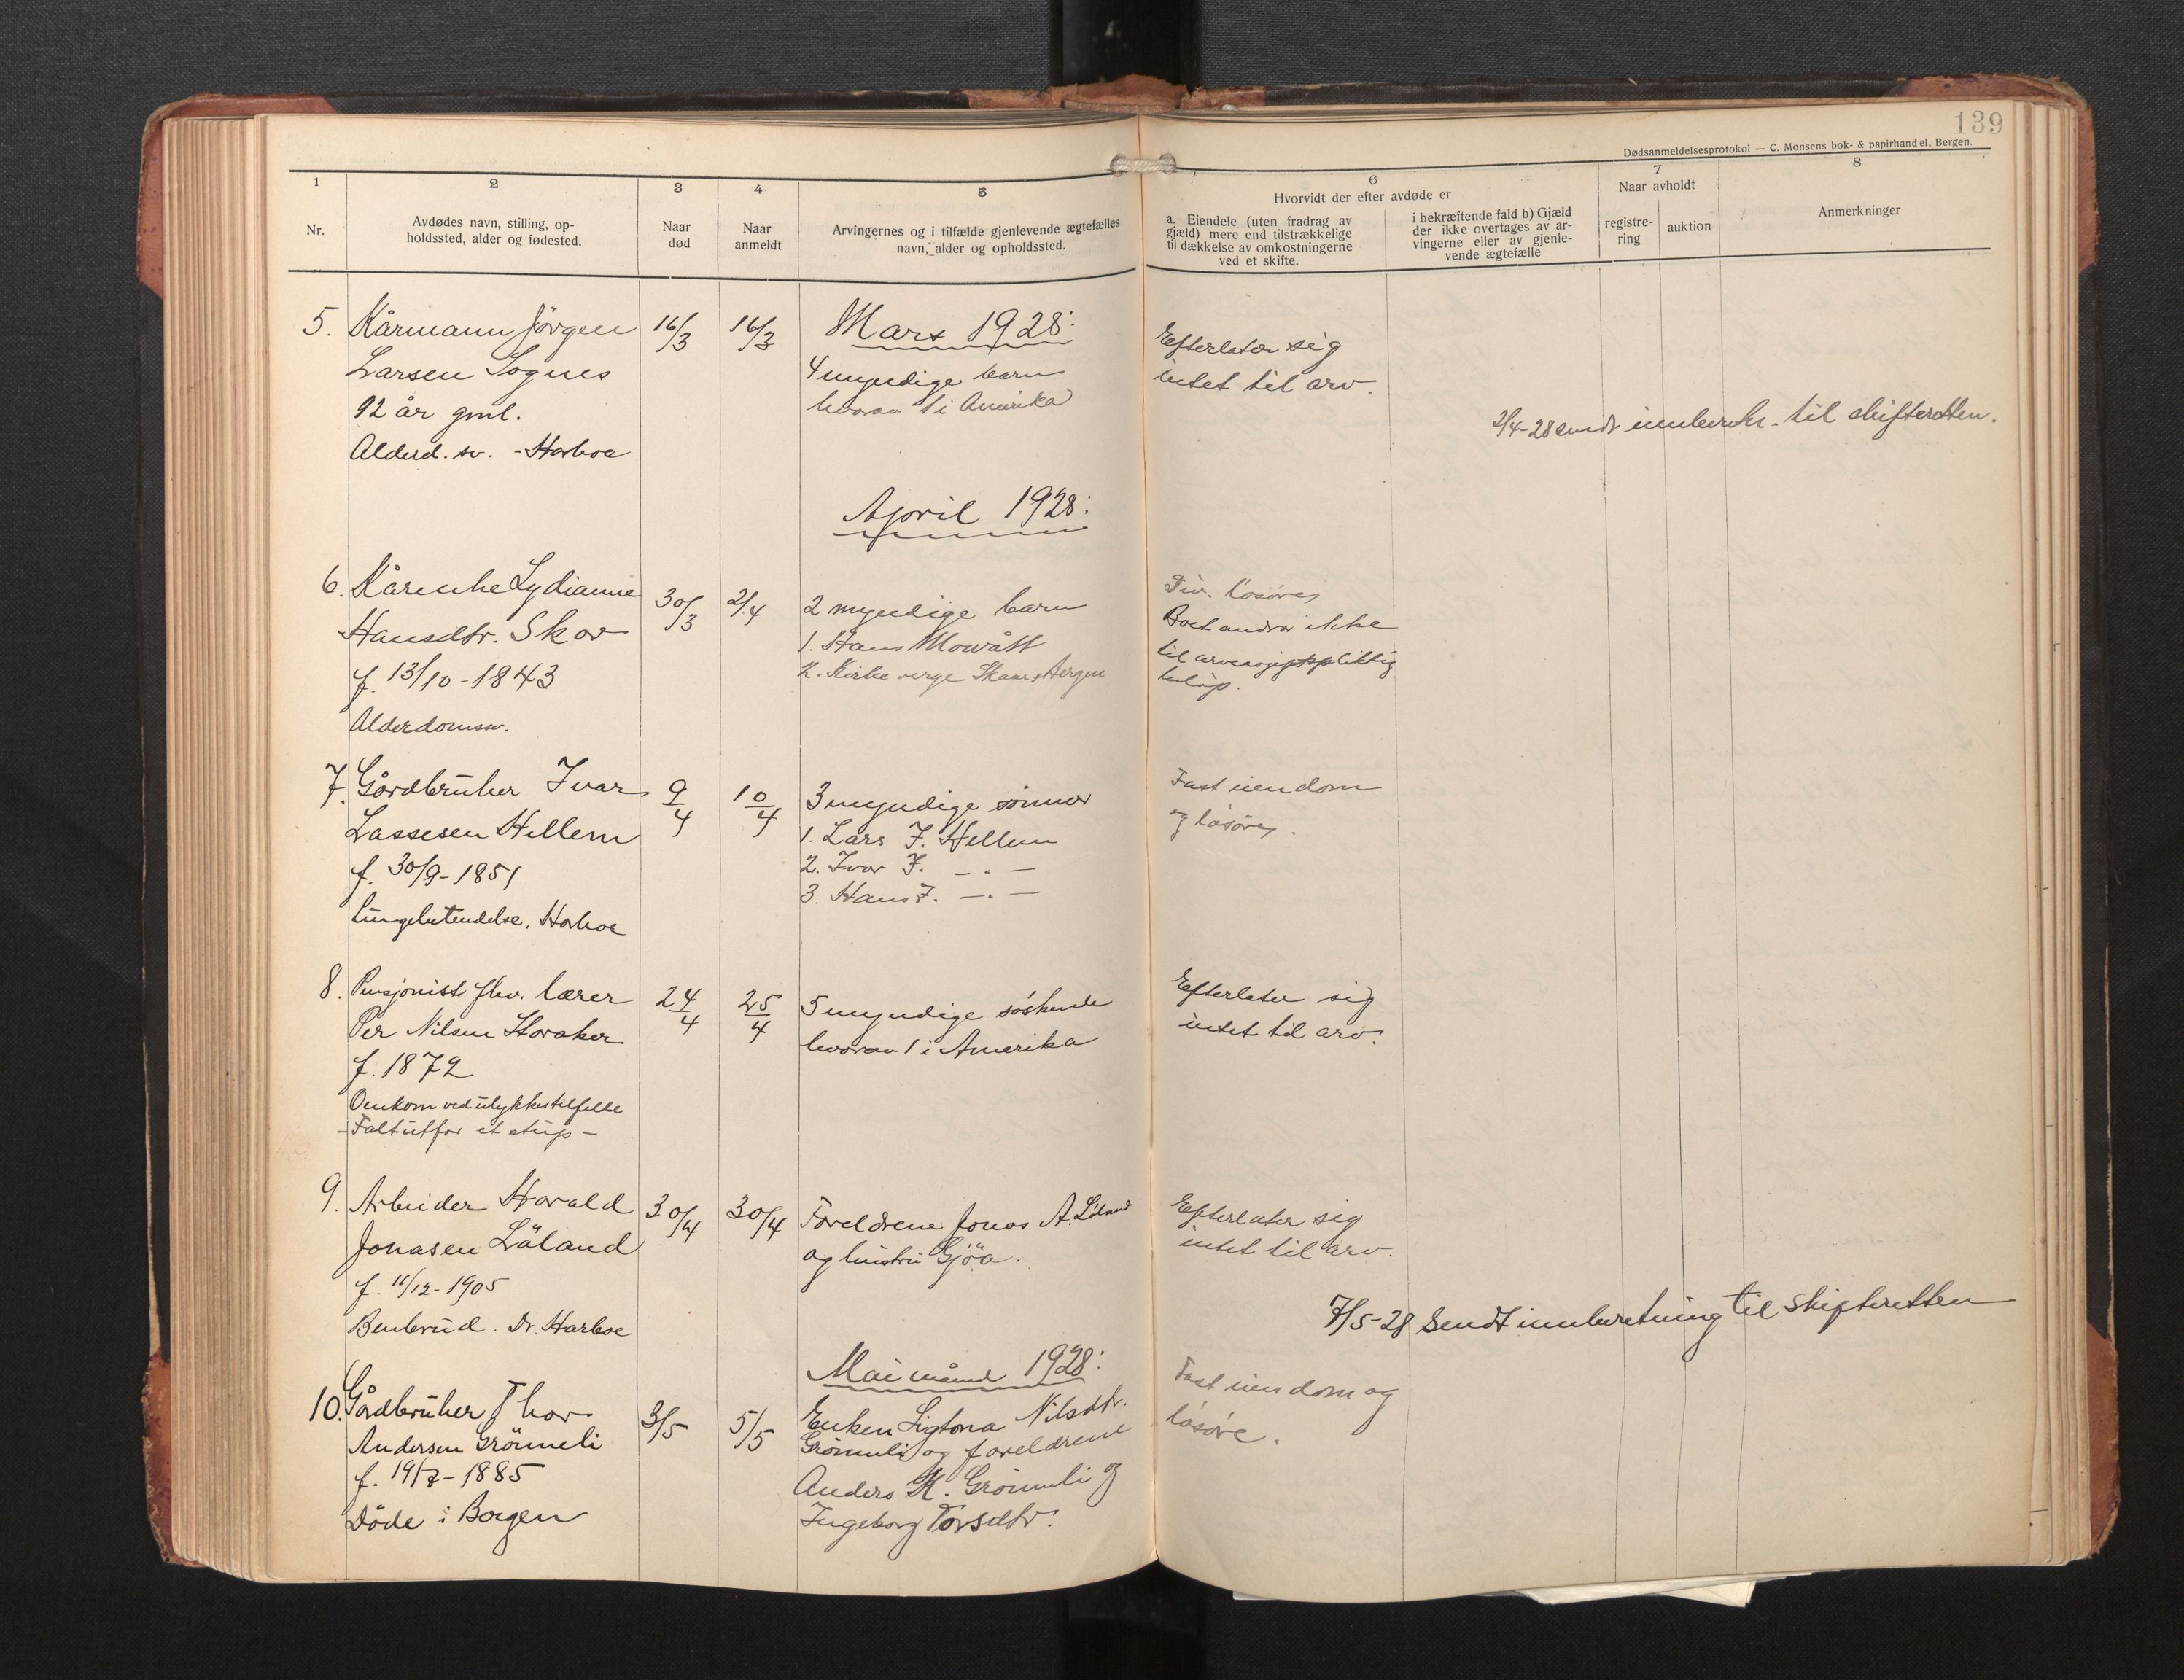 139
Dødsanmeldelsesprotokol — C. Monsens bok- & papirhandel, Bergen.
1
2
3
4
5
6
7
8
Nr.
Avdødes navn, stilling, op-
holdssted, alder og fødested.
Naar
død
Naar
anmeldt
Arvingernes og i tilfælde gjenlevende ægtefælles
navn, alder og opholdssted.
Hvorvidt der efter avdøde er
a. Eiendele (uten fradrag av
gjæld) mere end tilstrækkelige
til dækkelse av omkostningerne
ved et skifte.
i bekræftende fald b) Gjæld
der ikke overtages av ar-
vingerne eller av gjenle-
vende ægtefælle
Naar avholdt
registre-
ring
auktion
Anmerkninger
Mars 1928:
5. Kårmann Jörgen 16/3 16/3
Larsen Sognes
92 år gml.
Alderd. sv. - Harboe
4 myndige barn
hvorav 1 i Amerika
Efterlater sig
intet til arv.
2/4-28 sendt innberetn. til skifteretten.
April 1928:
6. Lydianne 30/3 2/4
Hansdtr. Skor
f. 13/10-1843
Alderdomssv.
2 myndige barn
1. Hans Mowått
2. Kirkeverge Skaar, Bergen
Div. lösöre,
Boet andrar ikke
til arveavgiftspliktig
belöp.
7. Gårdbruker Ivar 9/4 10/4
Lassesen Hellem
f. 30/9-1851
Lungebetendelse. Harboe
3 myndige sönner
1. Lars I. Hellem
2. Ivar I. — . —
3. Hans I. — . —
Fast eiendom
og lösöre.
8. Pensjonist fhv. lærer 24/4 25/4
Per Nilsen Horaker
f. 1872
Omkom ved ulykkestilfelle
- Falt utfor et stup -
5 myndige söskende
hvorav 1 i Amerika
Efterlater sig
intet til arv.
9. Arbeider Harald 30/4 30/4
Jonasen Löland
f. 11/12-1905
Benbrud. Dr. Harboe
Foreldrene Jonas A. Löland
og hustru Gjöa.
Efterlater sig
intet til arv.
7/5-28 Sendt innberetning til skifteretten
Mai måned 1928:
10. Gårdbruker Thor 3/5 5/5
Andersen Grönneli
f. 19/7-1885
Döde i Bergen
Enken Nilsdtr.
Grönneli og foreldrene
Anders K. Grönneli og
Ingeborg Torsdtr.
Fast eiendom og
lösöre.